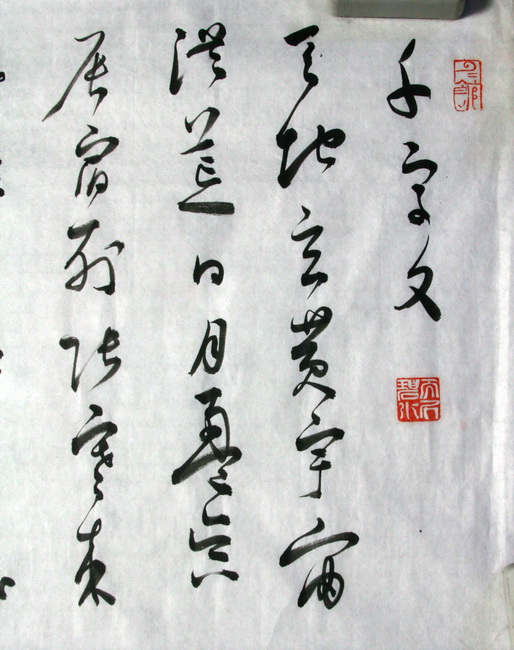 千字文
天地玄黄宇宙
洪荒日月盈昃
辰宿列张寒来